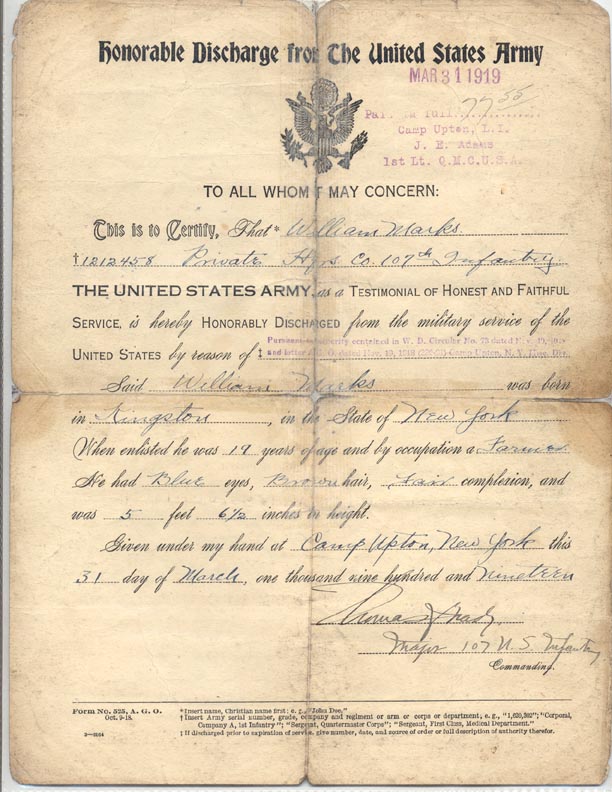 Honorable Discharge from The United States Army
MAR 31 1919
77 55
Paid in full
Camp Upton, L. I.
J. E. Adams
1st Lt. Q.M.C.U.S.A.
TO ALL WHOM IT MAY CONCERN:
This is to Certify, That* William Marks
†1212458 Private Hqrs Co. 107th Infantry
THE UNITED STATES ARMY, as a TESTIMONIAL OF HONEST AND FAITHFUL
SERVICE, is hereby HONORABLY DISCHARGED from the military service of the
UNITED STATES by reason of ‡ authority contained in W. D. Circular No. 73 dated Nov. 19, 1918
and letter dated Nov. 19, 1918 Camp Upton, N. Y.
Said William Marks was born
in Kingston, in the State of New York
When enlisted he was 19 years of age and by occupation a Farmer
He had Blue eyes, Brown hair, Fair complexion, and
was 5 feet 6½ inches in height.
Given under my hand at Camp Upton, New York this
31 day of March, one thousand nine hundred and nineteen
Major 107 U.S. Infantry
Commanding.
Form No. 525, A. G. O.
Oct. 9-18.
*Insert name, Christian name first; e. g., "John Doe."
†Insert Army serial number, grade, company and regiment or arm or corps or department; e. g., "1,620,302"; "Corporal,
Company A, 1st Infantry"; "Sergeant, Quartermaster Corps"; "Sergeant, First Class, Medical Department."
‡ If discharged prior to expiration of service, give number, date, and source of order or full description of authority therefor.